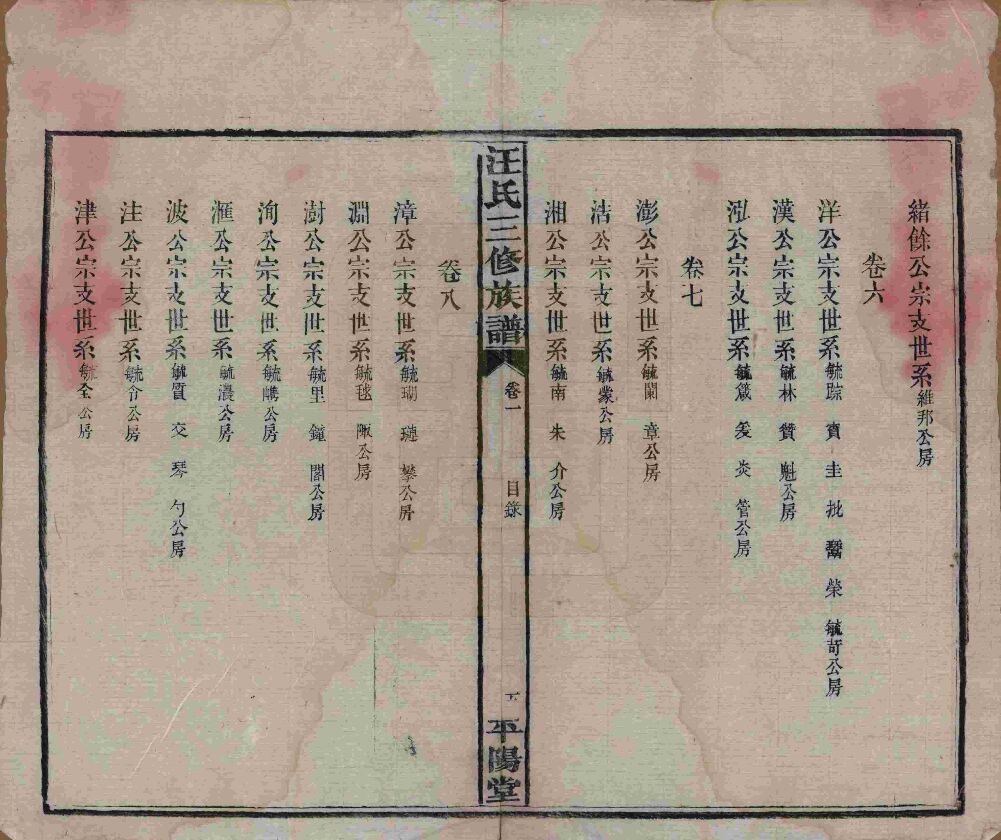 緒餘公宗支世系維邦公房
卷六
洋公宗支世系毓踪 寳 圭 批 榮 毓苛公房
漢公宗支世系毓林 贊 魁公房
泓公宗支世系毓箴 爰 炎 管公房
卷七
澎公宗支世系毓闌 章公房
浩公宗支世系毓蒙公房
湘公宗支世系毓南 朱 介公房
汪氏三修族譜 卷一 目錄 平陽堂
卷八
漳公宗支世系毓瑚 璉 攀公房
淵公宗支世系毓毬 陬公房
澍公宗支世系毓里 鐘 閣公房
洵公宗支世系毓公房
滙公宗支世系毓濃公房
波公宗支世系毓質 交 琴 勺公房
注公宗支世系毓令公房
津公宗支世系毓全公房